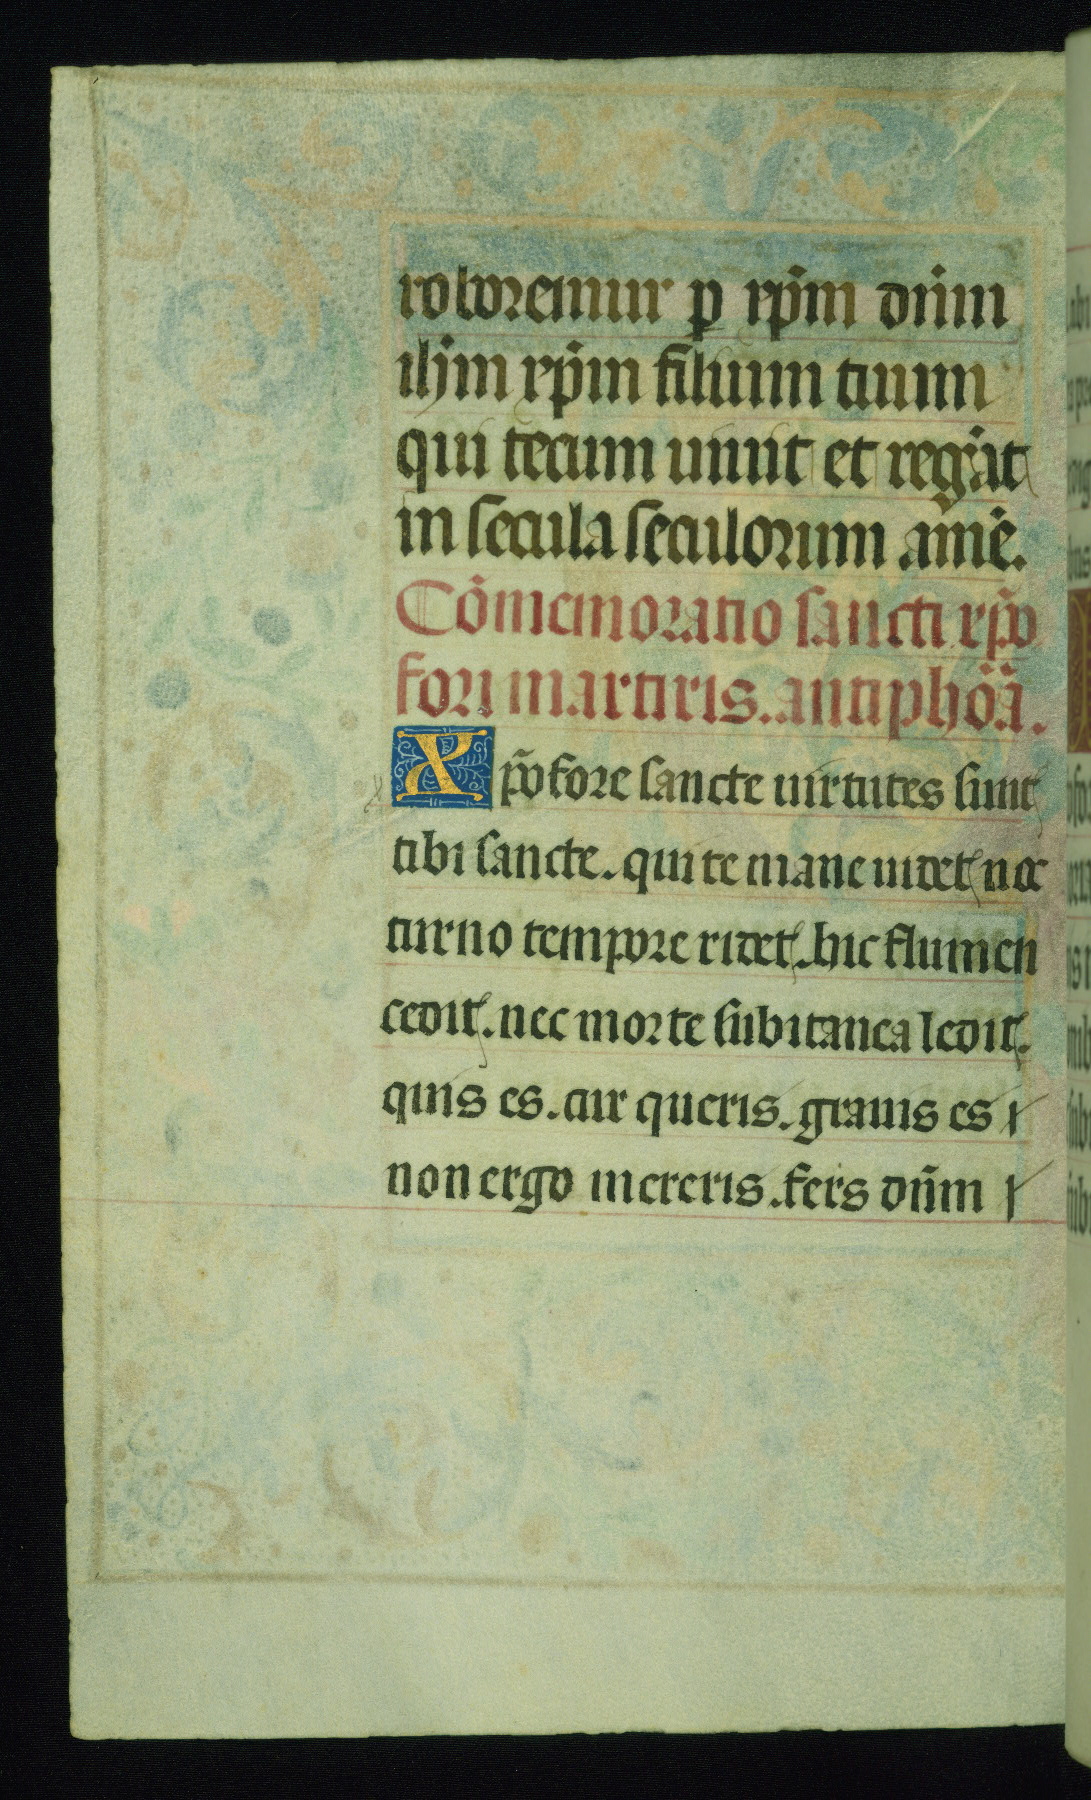 roboremur p xp̄m dn̄m
ihm̄ xp̄m filium tuum
qui tecum uiuit et regn̄at
in secula seculorum ame̅.
Co̅memoratio sancti xp̄o
fori martiris. antipho̅a̅.
Xp̄ofore sancte uirtutes sunt
tibi sancte. qui te mane uidet noc
turno tempore ridet. hic flumen
cedit. nec morte subitanea ledit.
quis es. cur queris. grauis es
non ergo mereris. fers dn̄m